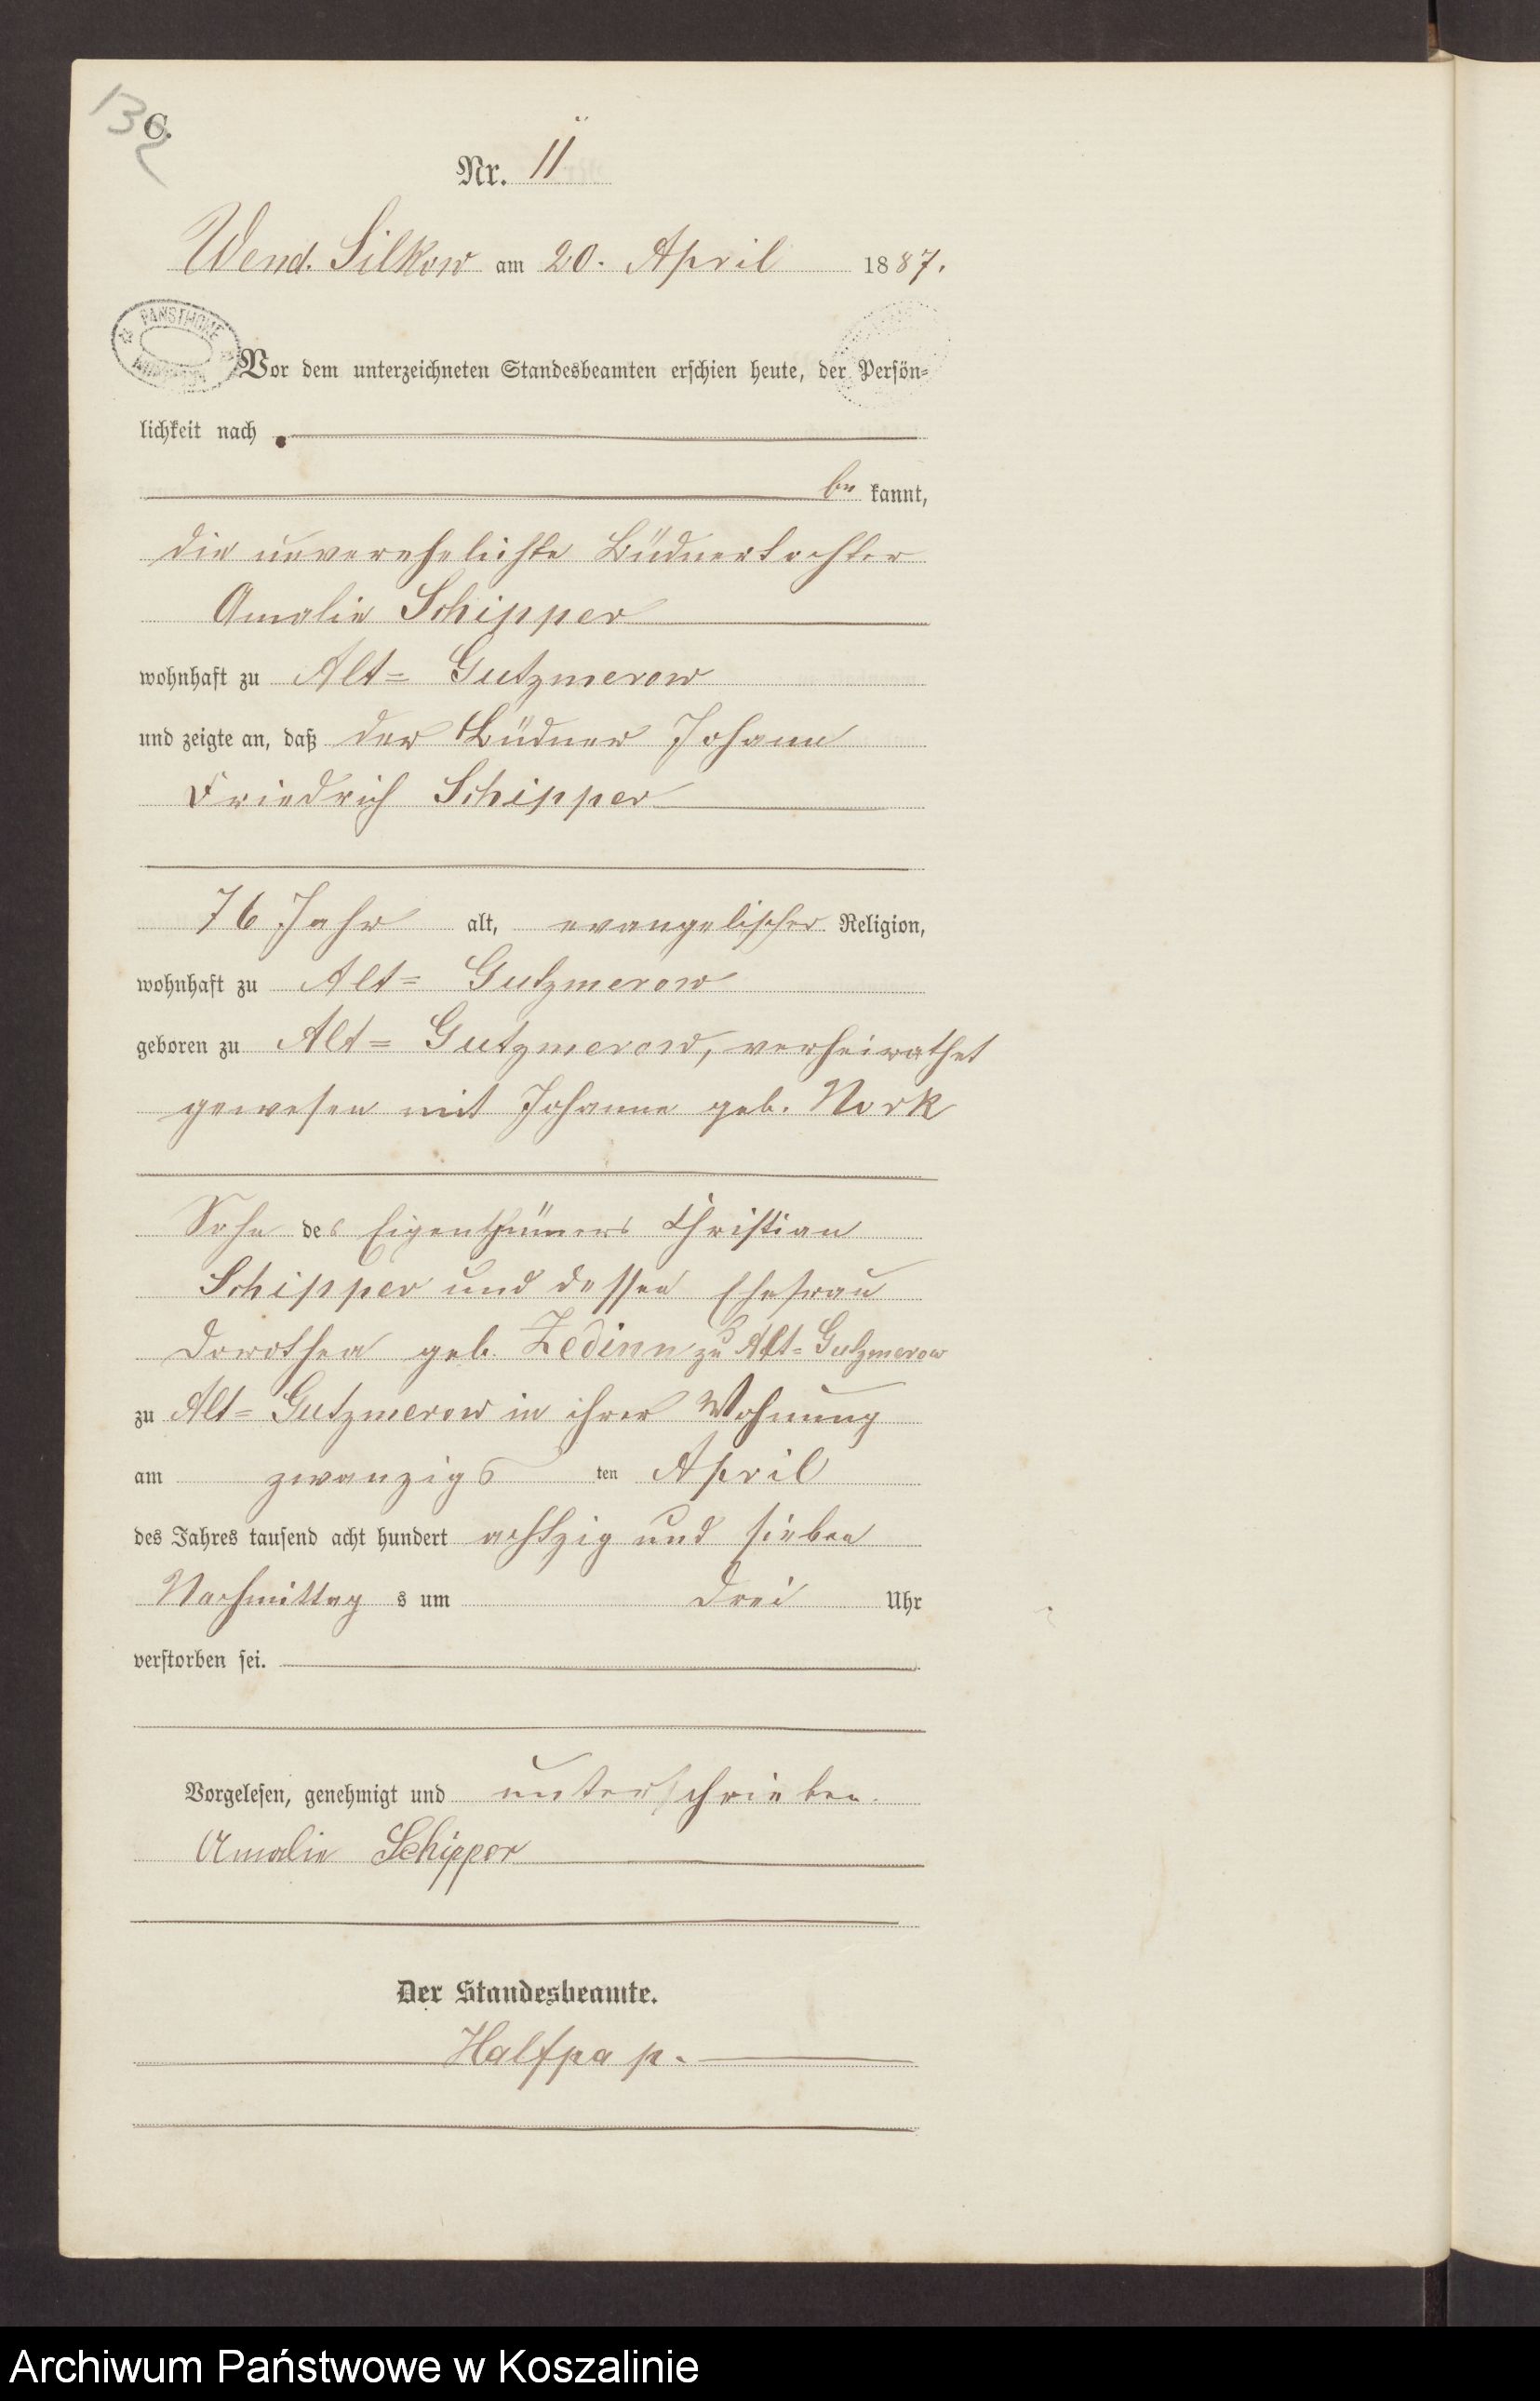 13
C.
Nr. 11
Wend. Silkow am 20. April 1887.
Vor dem unterzeichneten Standesbeamten erschien heute, der Persön-
lichkeit nach
be kannt,
die unverehelichte Büdnertochter
Amalie Schipper
wohnhaft zu Alt= Gutzmerow
und zeigte an, daß der Büdner Johann
Friedrich Schipper
76 Jahr alt, evangelischer Religion,
wohnhaft zu Alt= Gutzmerow
geboren zu Alt= Gutzmerow, verheirathet
gewesen mit Johanne geb. Nork
Sohn des Eigenthümers Christian
Schipper und dessen Ehefrau
Dorothea geb. Zedinn zu Alt= Gutzmerow
zu Alt= Gutzmerow in ihrer Wohnung
am zwanzigs ten April
des Jahres tausend acht hundert achtzig und sieben
Nachmittag s um drei Uhr
verstorben sei.
Vorgelesen, genehmigt und unterschrieben.
Amalie Schipper
Der Standesbeamte.
Halfpap.
Archiwum Państwowe w Koszalinie